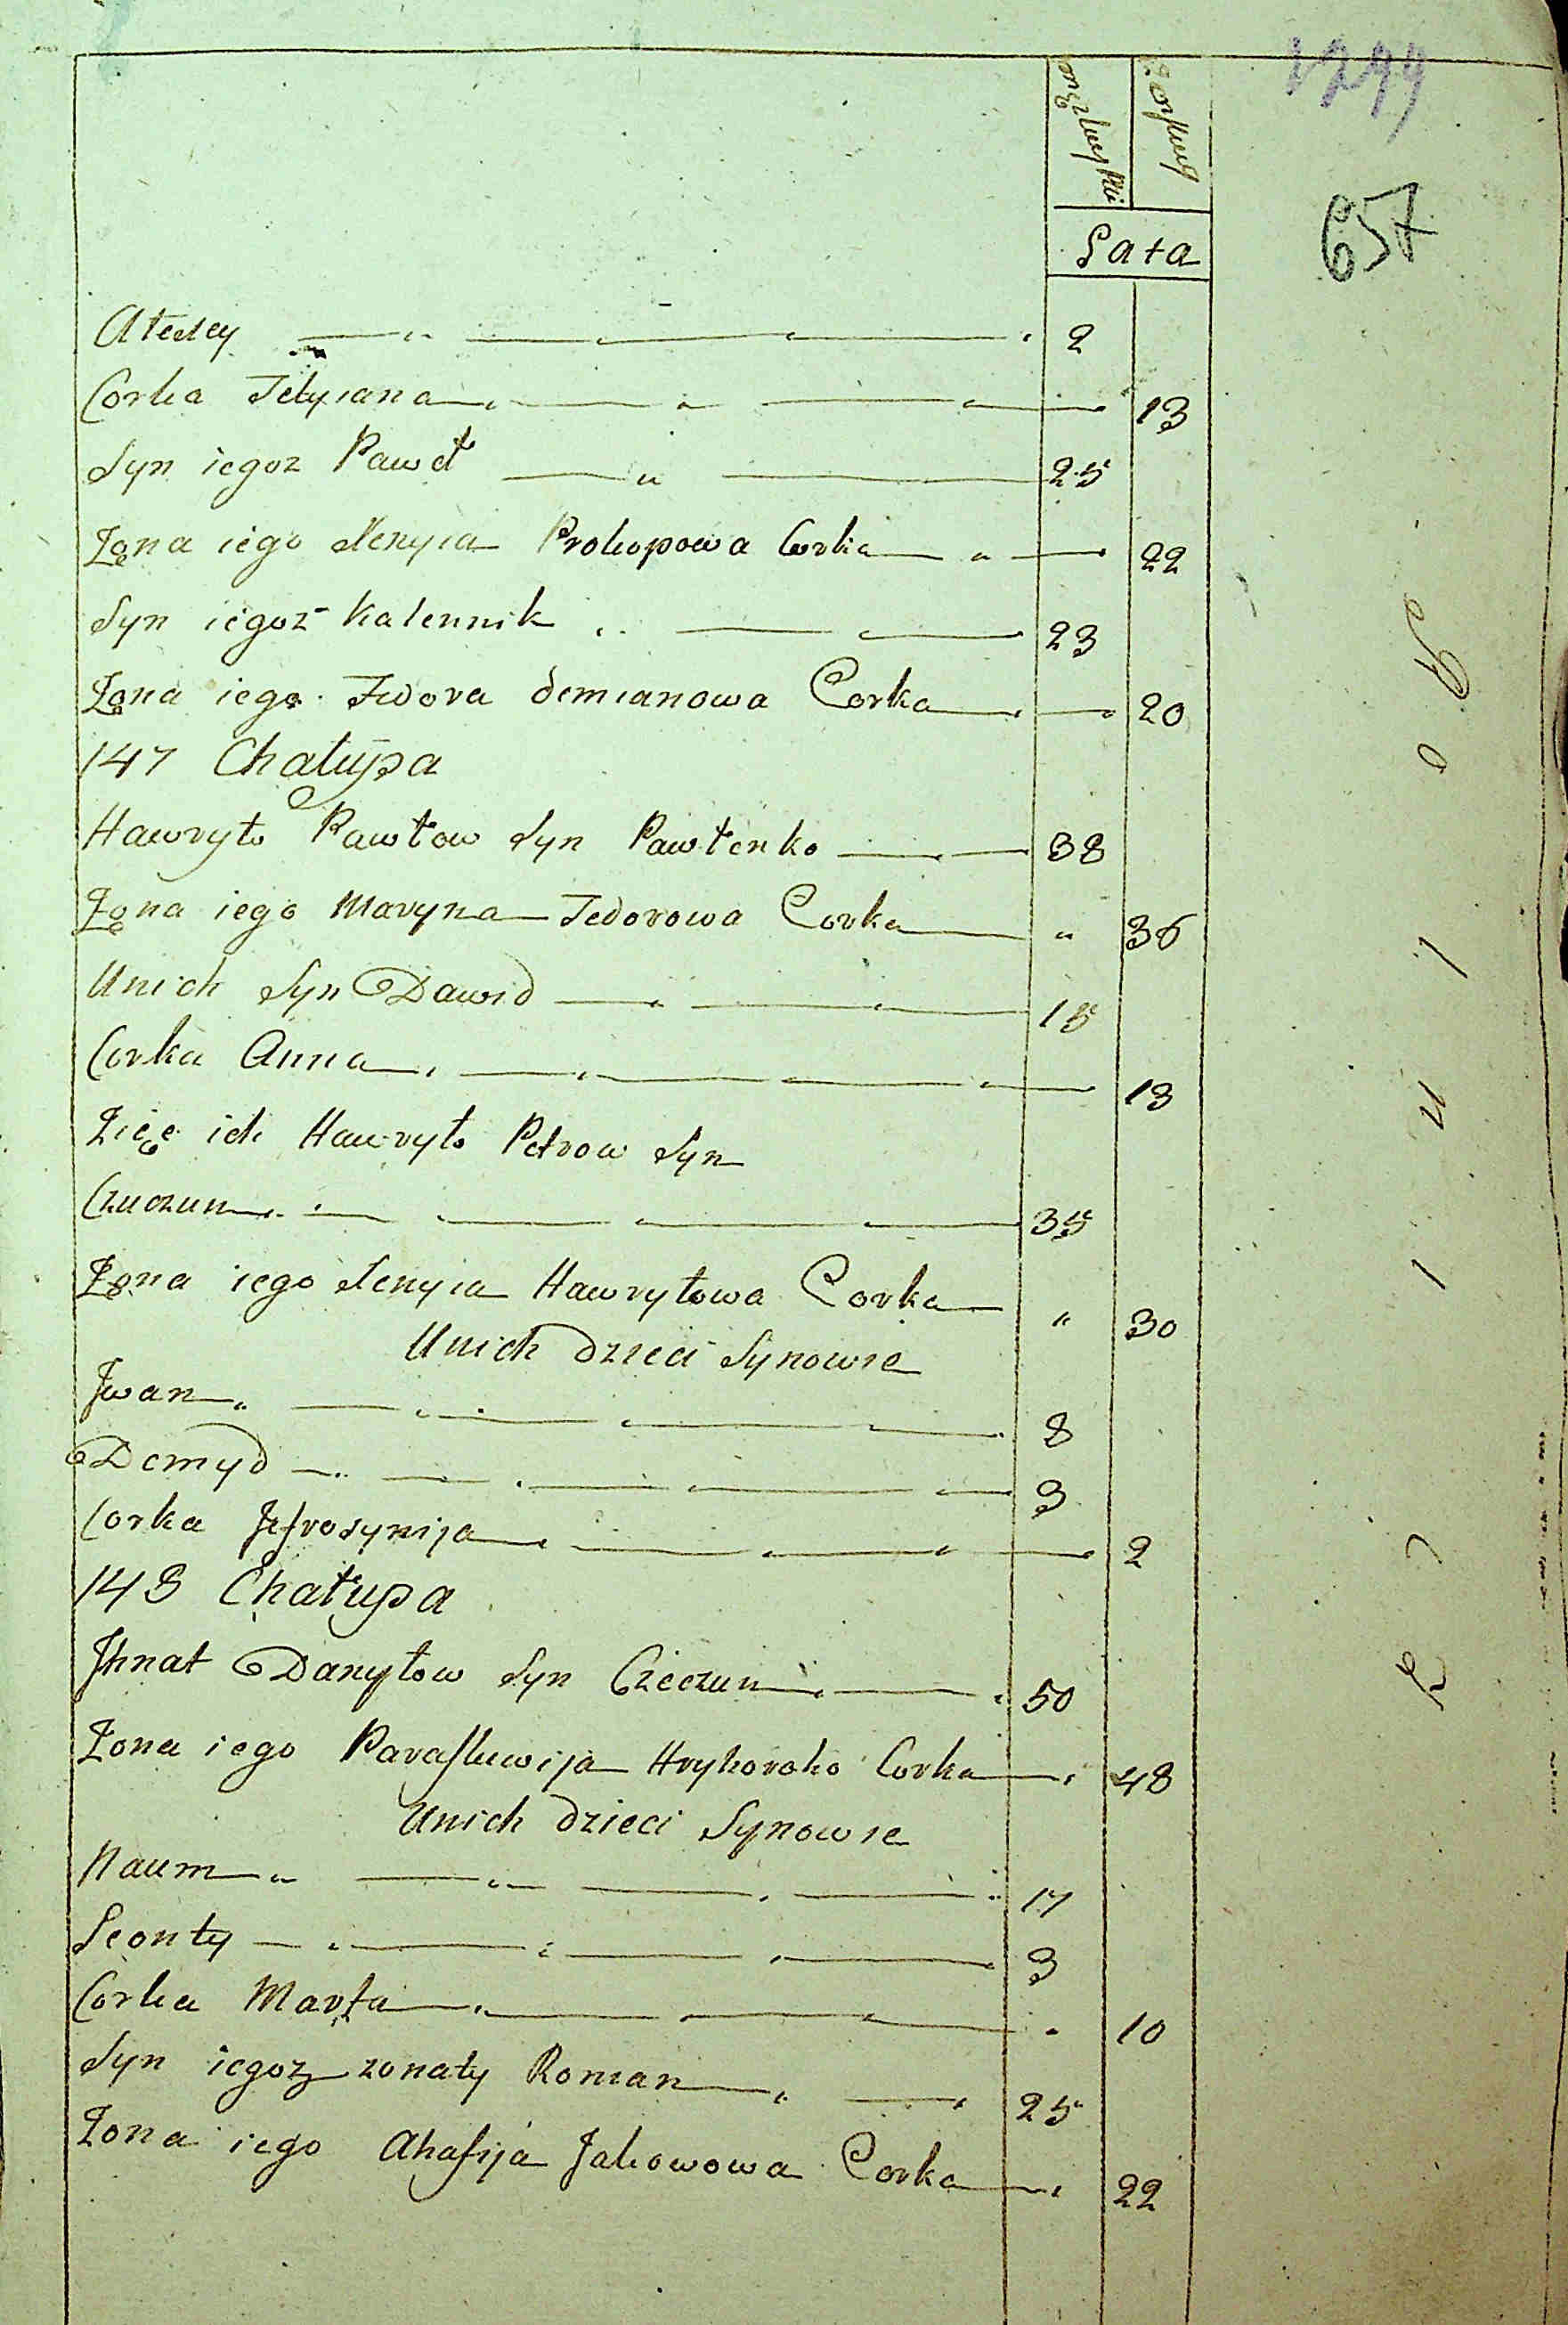 1299
657
męzkey płci
Lata
Ałexey 2
Corka Tetyiana 13
Syn iegoz Paweł 25
Zona iego Xenyia Prokopowa Corka 22
Syn iegoz Kalennik 23
Zona iego Fwora demianowa Corka 20
147 Chałupa
Hawryło Pawłow Syn Pawłenko 38
Zona iego Maryna Fedorowa Corka " 36
Unich Syn Dawid 15
Corka Anna 13
Zięc ich Hawryło Petrow Syn
Czuczun 35
Zona iego Xenyia Hawryłowa Corka " 30
Unich dzieci Synowie
Jwan 8
Demyd 3
Corka Jefrosynija 2
148 Chałupa
Jhnat Danyłow Syn Czeczun 50
Zona iego Paraskewija Hryhorcko Corka 48
Unich dzieci Synowie
Naum 17
Leonty 3
Corka Marta " 10
Syn iegoz zonaty Roman 25
Zona iego Ahafija Jakowowa Corka 22